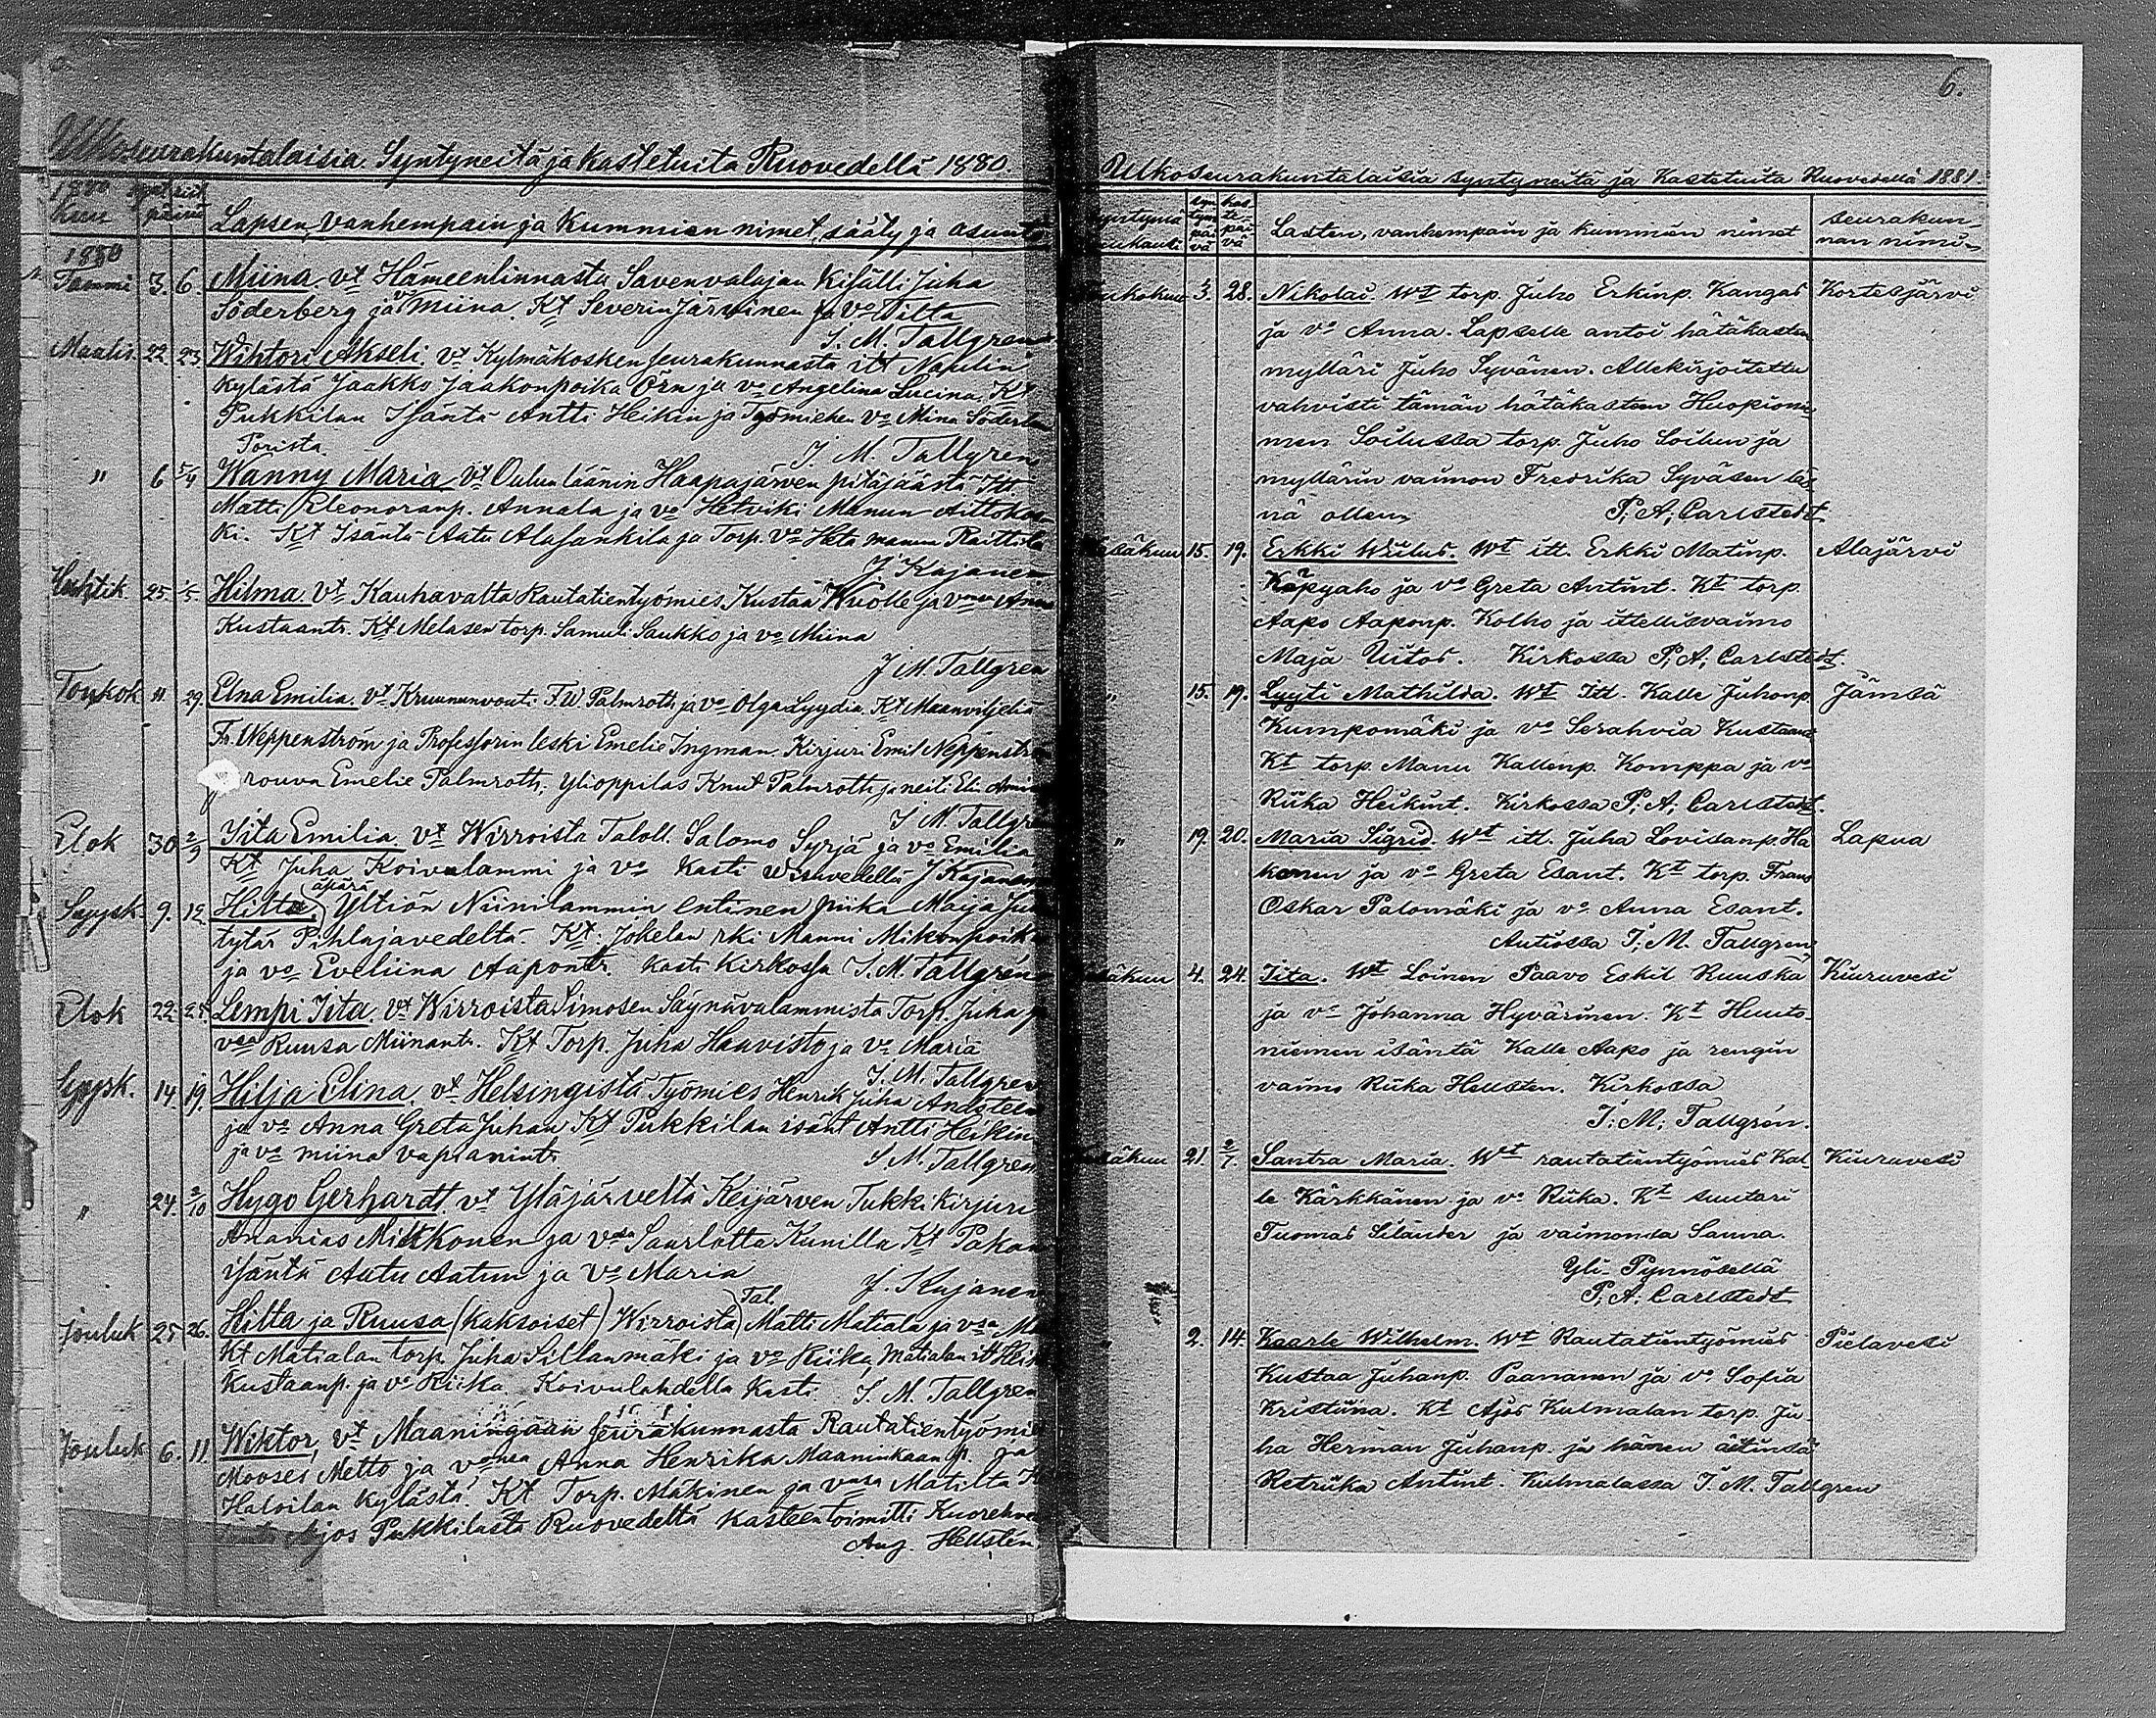 Ulkoseurakuntalaisia Syntyneitä ja kastetuita Ruovedellä 1880.
1880
Kuu päivä Lapsen, vanhempain ja Kummien nimet, sääty ja asunto
1880
Tammi 3. 6. Miina. vt Hämeenlinnasta Savenvalajan Kisälli Juha
Söderberg ja vo Miina. Kt Severin Järvinen ja vo Wilta
J. M. Tallgren
Maalis. 22. 23. Wihtori Akseli. vt Kylmäkosken seurakunnasta itt Napilin
kylästä Jaakko Jaakonpoika Örn ja vo Angelina Lucina, Kt
Pukkilan Isäntä Antti Heikin ja Työmiehen vo Mina
Porista. J. M. Tallgren
" 6 5/4 Wanny Maria. vt Oulun läänin Haapajärven pitäjäästä Itt.
Matti Eleonoranp. Annala ja vo Hetviki Manun
ki. Kt Isäntä Aatu Alasankila ja Torp. vo Heta Raittila
J. Kajanen
Huhtik. 25. 1/5. Hilma. vt Kauhavalta Rautatientyömies Kustaa Wuolle ja
Kustaantr. Kt Melasen torp. Samuli Saukko ja vo Miina
J. M. Tallgren
Toukok 11 29. Elna Emilia. vt Kruununvouti F. W Palmroth ja vo Olga Lyydia. Kt Maanviljeliä
Fr. Neppenström ja Professorin leski Emelie Ingman. Kirjuri Emil
rouva Emelie Palmroth, Ylioppilas Knut Palmroth ja neiti Eli
J. M. Tallgren
Elok 30 2/9 Iita Emilia. vt Wirroista Taloll. Salomo Syrjä ja vo Emilia
Kt Juha Koivulammi ja vo Kasti J Kajanen
Syysk. 9. 12. Hilta äpärä Yltiön Niinilammin entinen piika Maija
tytär Pihlajavedeltä. Kt. Jokelan rki Manni Mikonpoika
ja vo Eveliina Aapontr. Kasti Kirkossa J. M. Tallgren
Elok 22. 25. Lempi Iita. vt Wirroista Simosen Säynävälammista Torp. Juha
vsa Ruusa Miinantr. Kt Torp. Juha Haavisto ja vo Maria
J. M. Tallgren
Syysk. 14. 19. Hilja Elina. vt Helsingistä Työmies Henrik Juha
ja vo Anna Greta Juhan Kt Pukkilan isänt Antti Heikin
ja vo miina J. M. Tallgren
" 24. 2/10 Hygo Gerhardt. vt Yläjärveltä Keijärven Tukki kirjuri
Ananias Mikkonen ja vsa Saarlotta Kunilla Kt
isäntä Aatu Aatun ja vo Maria J. Kajanen
Jouluk 25 26. Hilta ja Ruusa (kaksoiset) Wirroista Tal. Matti Matiala ja vsa
Kt Matialan torp. Juha Sillanmäki ja vo Riika, Matialan itt
Kustaanp. ja vo Riika. Koivulahdella Kasti J. M. Tallgren
Jouluk 6. 11. Wiktor, vt Maaningään seurakunnasta Rautatientyömies
Mooses Metto ja vonsa Anna Henrika Maaninkaan
Haloilan kylästä. Kt Torp. Mäkinen ja vnsa Matilta
Ajos Pukkilasta Ruovedeltä kasteen toimitti
Aug. Hellstén.
6.
Ulkoseurakuntalaisia syntyneitä ja kastetuita Ruovedellä 1881.
syntymä kuukausi syntymä päivä kaste-päivä Lasten, vanhempain ja kummien nimet seurakunnan nimi
3. 28. Nikolai. Wt torp. Juho Erkinp. Kangas Kortesjärvi
ja vo Anna. Lapselle antoi hätäkasteen
mylläri Juho Syvänen. Allekirjoitettu
vahvisti tämän hätäkasteen Huopionie
men Soilussa torp. Juho Soilun ja
myllärin vaimon Fredrika Syväsen läs
nä ollen. P. A. Carlstedt
Kesäkuu 15. 19. Erkki Wilus. Wt itt. Erkki Matinp. Alajärvi
Käpyaho ja vo Greta Antint. Kt torp.
Aapo Aaponp. Kolho ja ittellisvaimo
Maja Uitos. Kirkossa P. A. Carlstedt.
" 15. 19. Lyyti Mathilda. Wt Itt. Kalle Juhonp. Jämsä
Kumpomäki ja vo Serahvia Kustaant
Kt torp. Manu Kallenp. Komppa ja vo
Riika Heikint. Kirkossa P. A. Carlstedt.
" 19. 20. Maria Sigrid. Wt itt. Juha Lovisanp. Ha Lapua
konen ja vo Greta Esant. Kt torp. Frans
Oskar Palomäki ja vo Anna Esant.
Autiossa J. M. Tallgren
4. 24. Iita. Wt Loinen Paavo Eskil Ruuska Kiuruvesi
ja vo Johanna Hyvärinen. Kt Huuto-
niemen isäntä Kalle Aapo ja rengin
vaimo Riika Hellsten. Kirkossa
J. M. Tallgrén.
Kesäkuu 21. 2/7. Santra Maria. Wt rautatientyömies Kal- Kiuruvesi
le Kärkkänen ja vo Riika. Kt suutari
Tuomas Silánder ja vaimonsa Sanna.
Yli-Pynnösellä
P. A. Carlstedt
2. 14. Kaarle Wilhelm. Wt Rautatientyömies Pielavesi
Kustaa Juhanp. Paananen ja vo Sofia
Kristiina. Kt Ajos Kulmalan torp. Ju-
ha Herman Juhanp. ja hänen äitinsä
Retriika Antint. Kulmalassa J. M. Tallgren